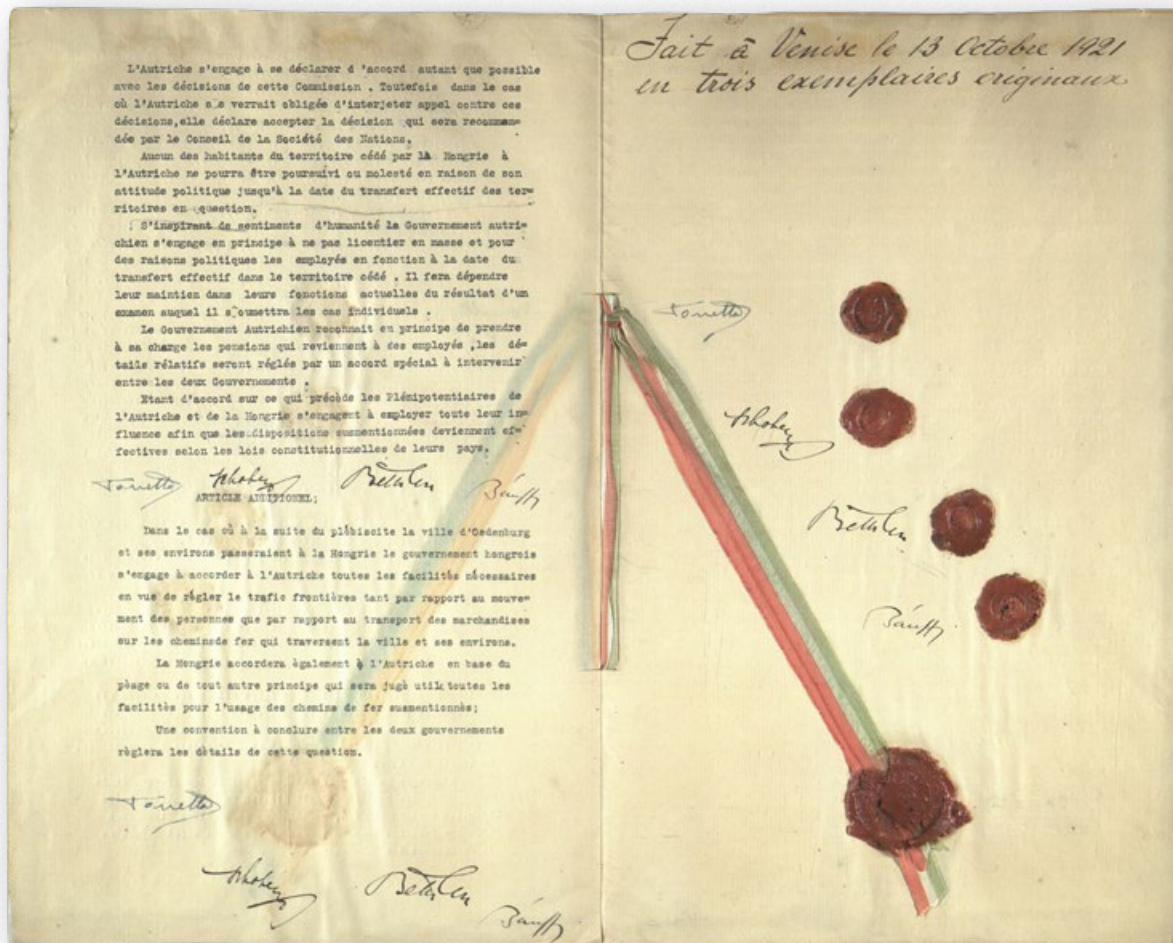 L'Autriche s'engage à se déclarer d 'accord autant que possible
avec les décisions de cette Commission . Toutefois dans le cas
où l'Autriche se verrait obligée d'interjeter appel contre ces
décisions,elle déclare accepter la décision qui sera recomman=
dée par le Conseil de la Société des Nations.
Aucun des habitants du territoire cédé par la Hongrie à
l'Autriche ne pourra être poursuivi ou molesté en raison de son
attitude politique jusqu'à la date du transfert effectif des ter=
ritoires en question.
S'inspirant de sentiments d'humanité le Gouvernement autri=
chien s'engage en principe à ne pas licentier en masse et pour
des raisons politiques les employés en fonction à la date du
transfert effectif dans le territoire cédé . Il fera dépendre
leur maintien dans leurs fonctions actuelles du résultat d'un
examen auquel il soumettra les cas individuels .
Le Gouvernement Autrichien reconnait en principe de prendre
à sa charge les pensions qui reviennent à des employés ,les dé=
tails rélatifs seront réglés par un accord spécial à intervenir
entre les deux Gouvernements .
Etant d'accord sur ce qui précède les Plénipotentiaires de
l'Autriche et de la Hongrie s'engagent à employer toute leur in=
fluence afin que les dispositions susmentionnées deviennent ef=
fectives selon les lois constitutionnelles de leurs pays.
Torretta Schober Bethlen Bánffy
ARTICLE ADDITIONEL;
Dans le cas où à la suite du plébiscite la ville d'Oedenburg
et ses environs passeraient à la Hongrie le gouvernement hongrois
s'engage à accorder à l'Autriche toutes les facilités nécessaires
en vue de régler le trafic frontières tant par rapport au mouve=
ment des personnes que par rapport au transport des marchandises
sur les cheminsde fer qui traversent la ville et ses environs.
La Hongrie accordera également à l'Autriche en base du
pèage ou de tout autre principe qui sera jugè utile toutes les
facilités pour l'usage des chemins de fer susmentionnés;
Une convention à conclure entre les deux gouvernements
règlera les dètails de cette question.
Torretta
Schober Bethlen Bánffy
Fait à Venise le 13 Octobre 1921
en trois exemplaires originaux
Torretta
Schober
Bethlen
Bánffy